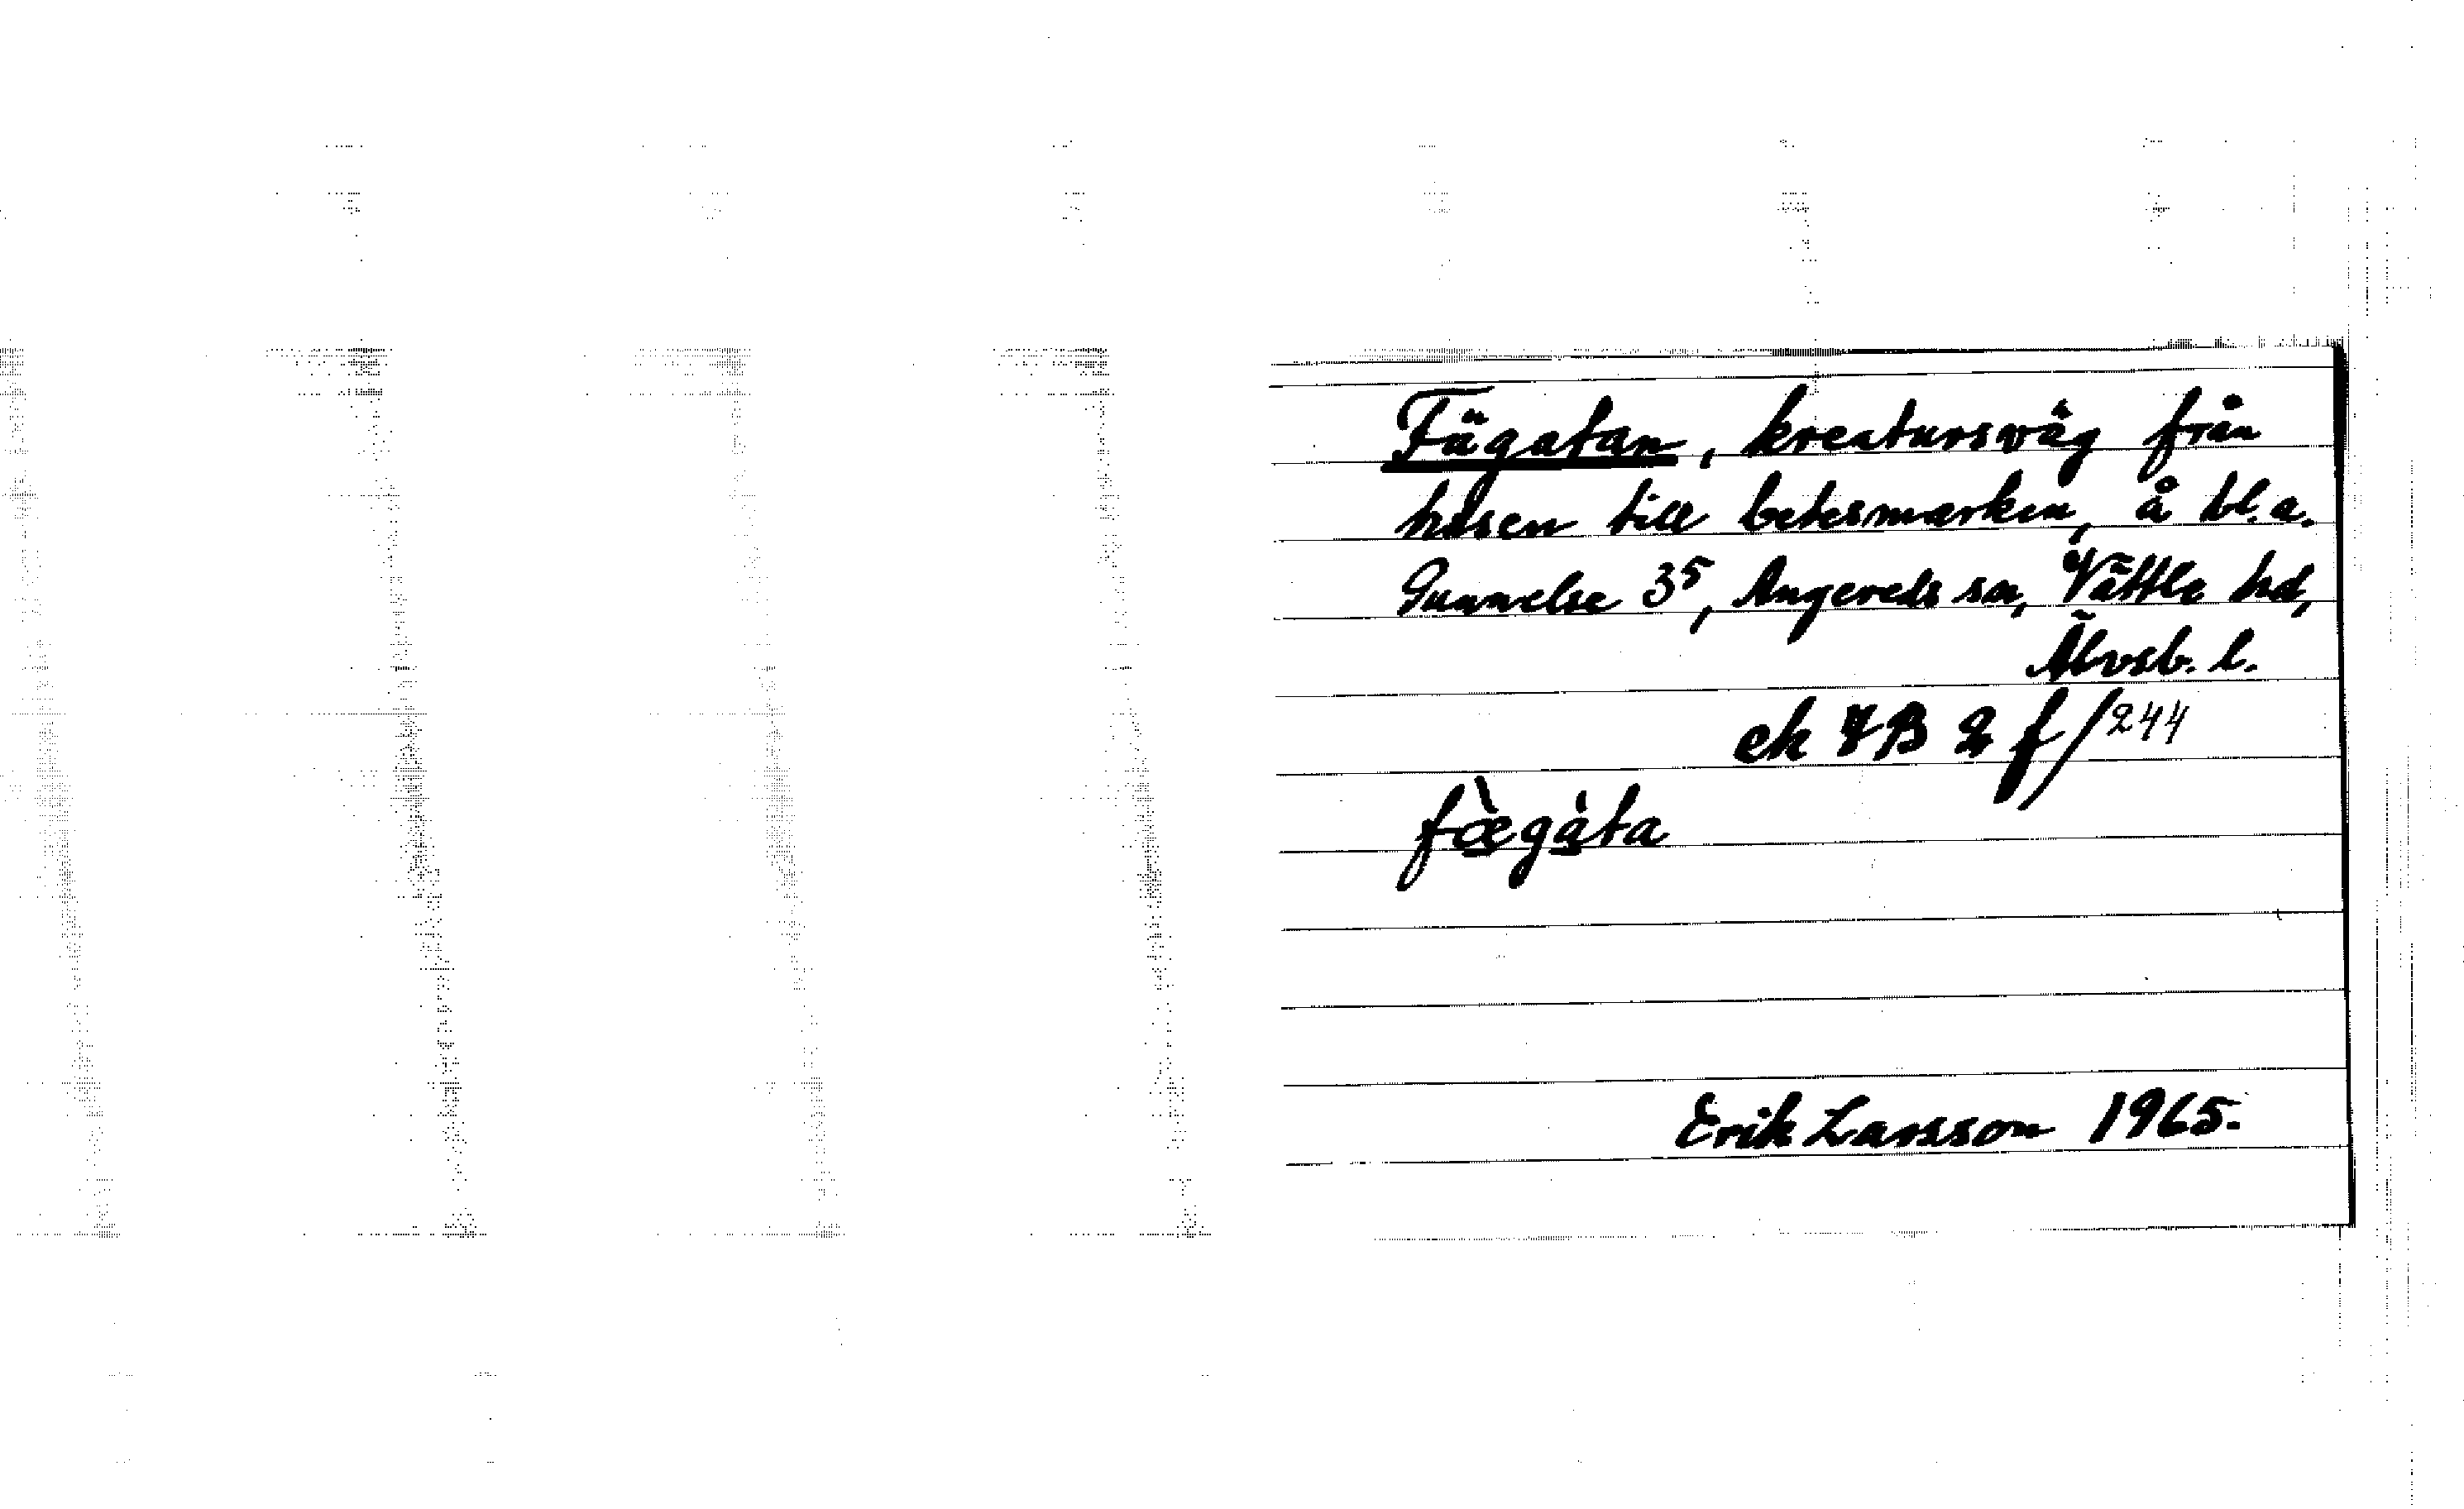 Fägatan, kreatursväg från
husen till betesmarken, å bl.a.
Gunnelse 3⁵, Angereds sn, Vättle hd,
Älvsb. l.
ek 7B 2 f/244
fœ̀gàta
Erik Larsson 1965.